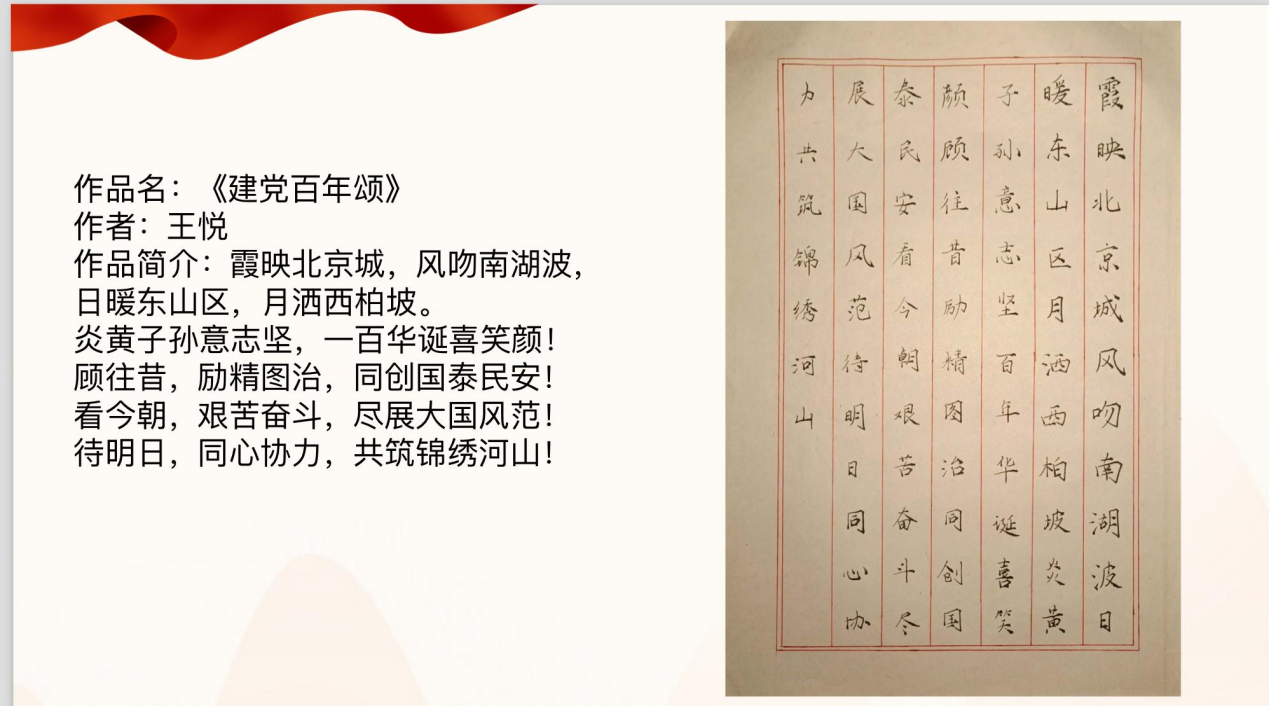 作品名：《建党百年颂》
作者：王悦
作品简介：霞映北京城，风吻南湖波，
日暖东山区，月洒西柏坡。
炎黄子孙意志坚，一百华诞喜笑颜！
顾往昔，励精图治，同创国泰民安！
看今朝，艰苦奋斗，尽展大国风范！
待明日，同心协力，共筑锦绣河山！
霞映北京城风吻南湖波日
暖东山区月洒西柏坡炎黄
子孙意志坚百年华诞喜笑
颜顾往昔励精图治同创国
泰民安看今朝艰苦奋斗尽
展大国风范待明日同心协
力共筑锦绣河山